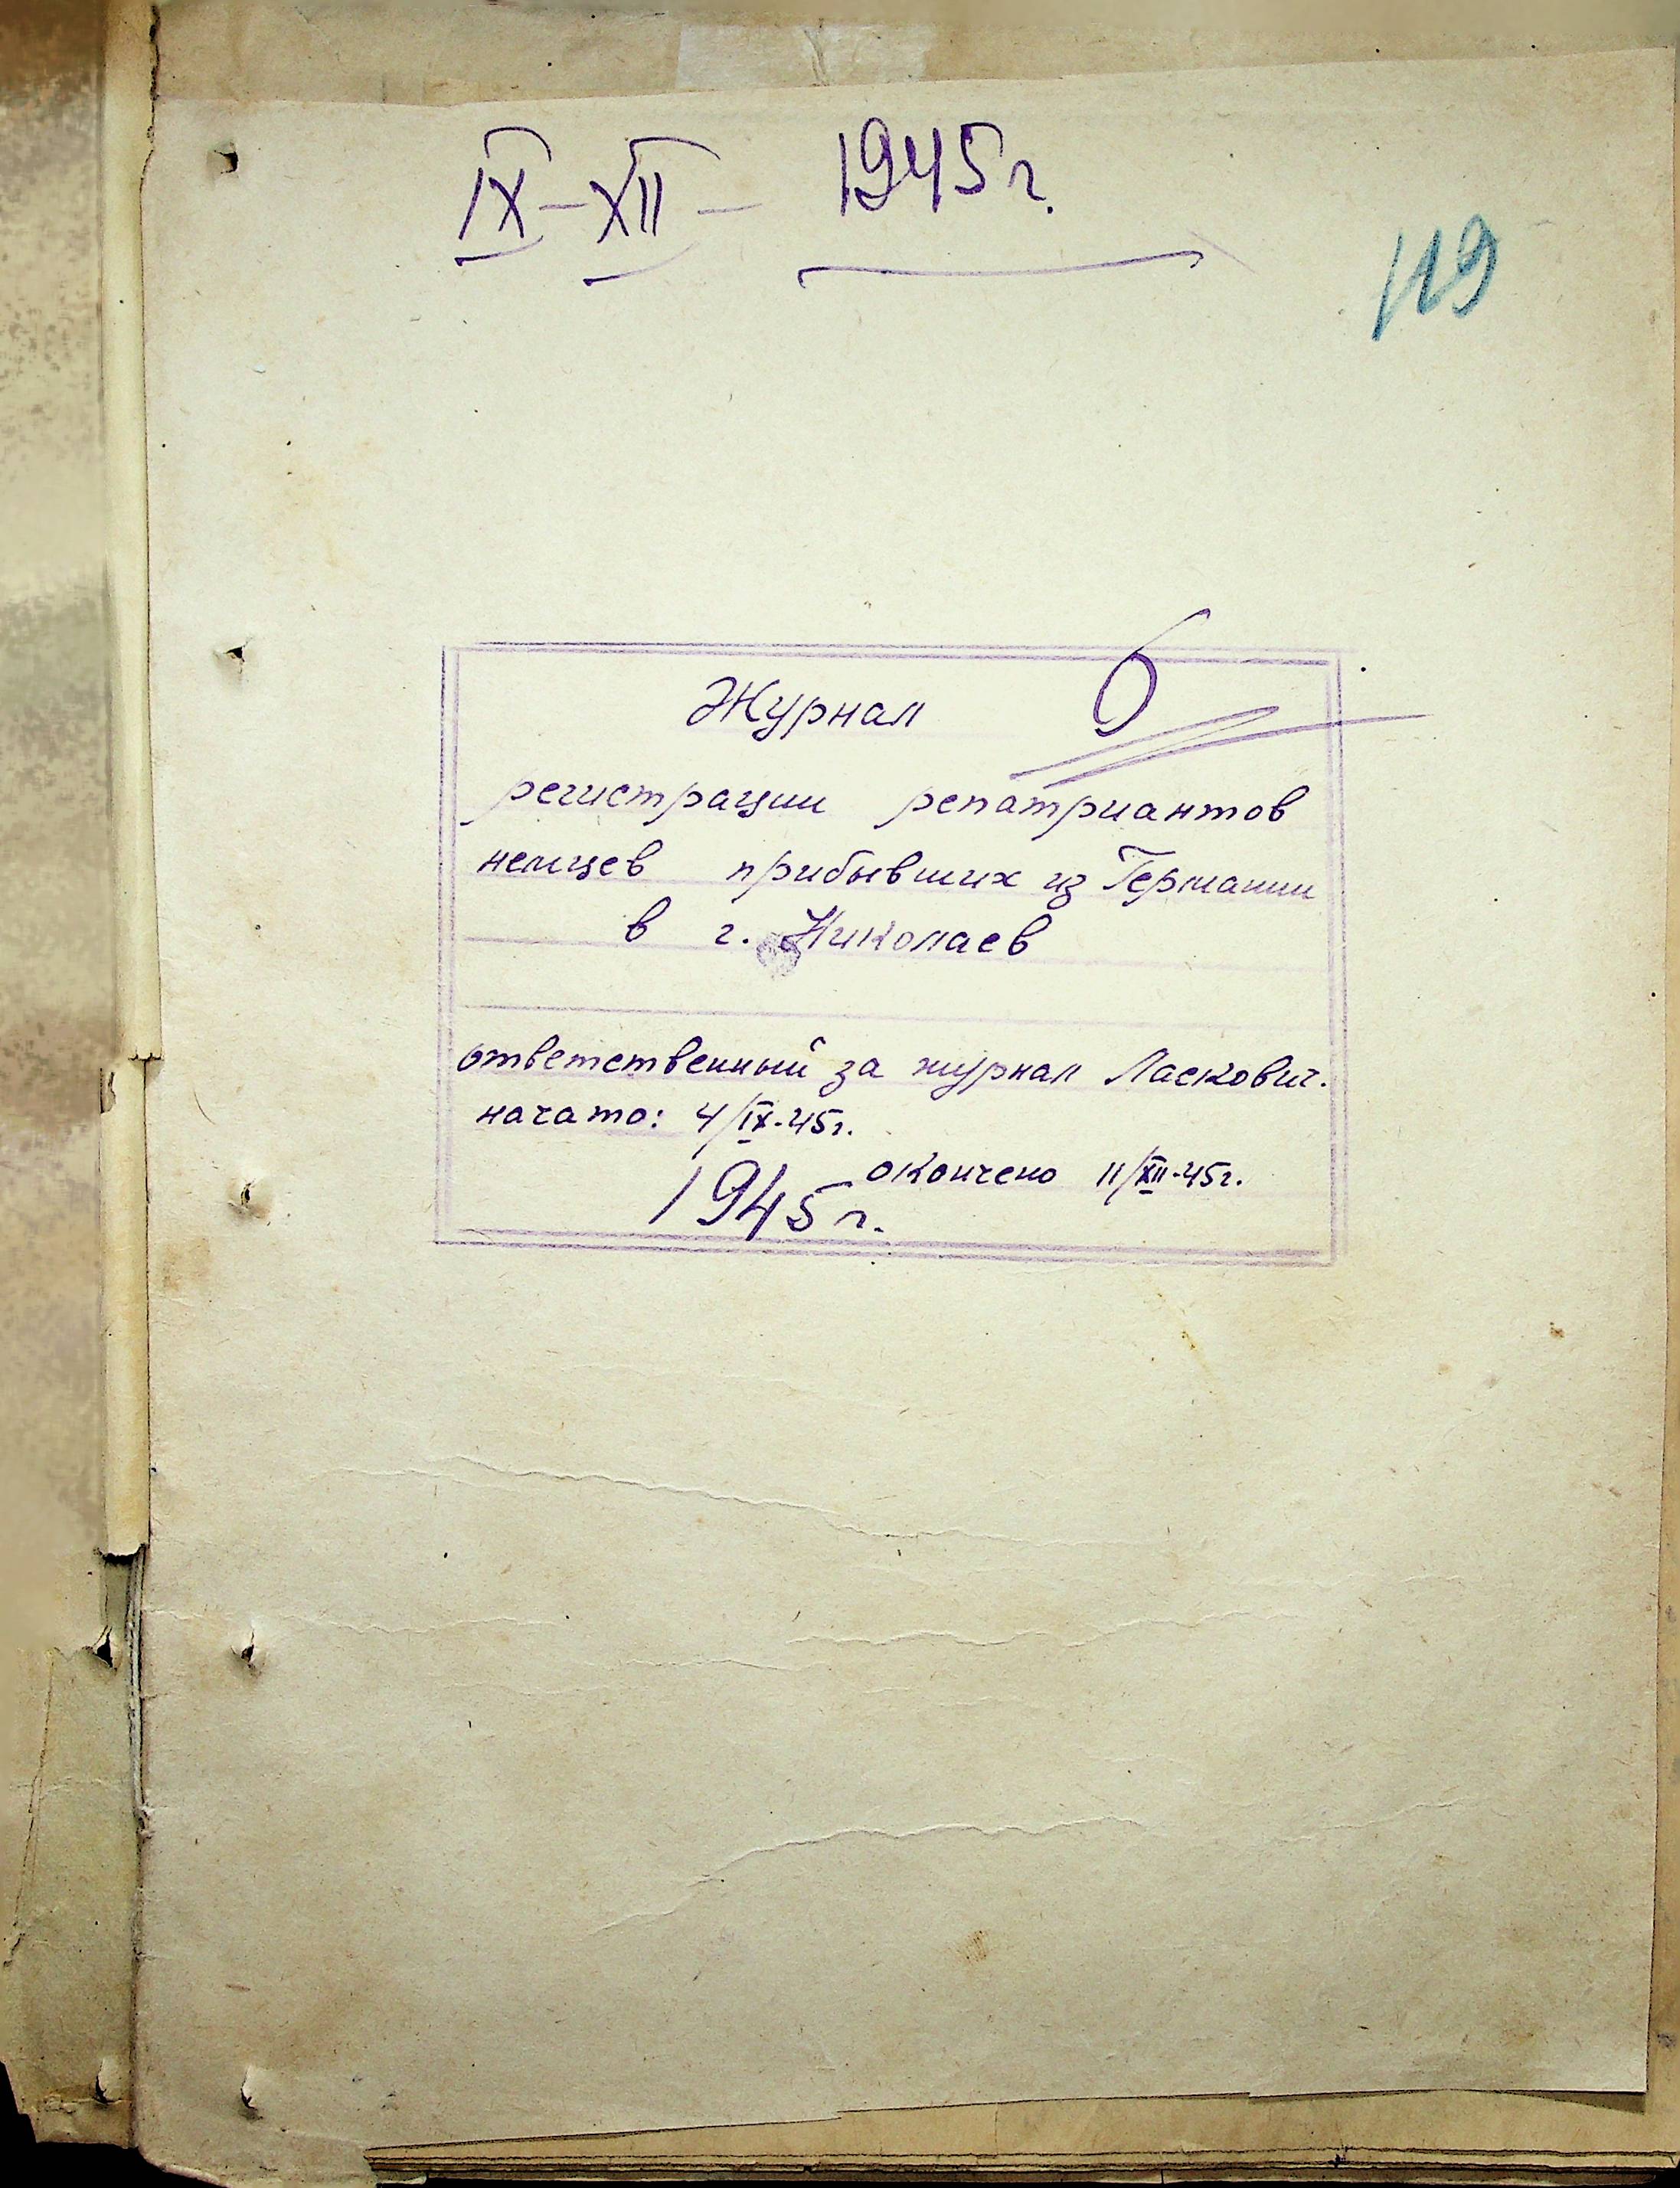 IX-XII- 1945г.
119
Журнал 6
регистрации репатриантов
немцев прибывших из Германии
в г. Николаев
ответственный за журнал Ласкович.
начато: 4/IX-45г.
окончено 11/XII-45г.
1945г.